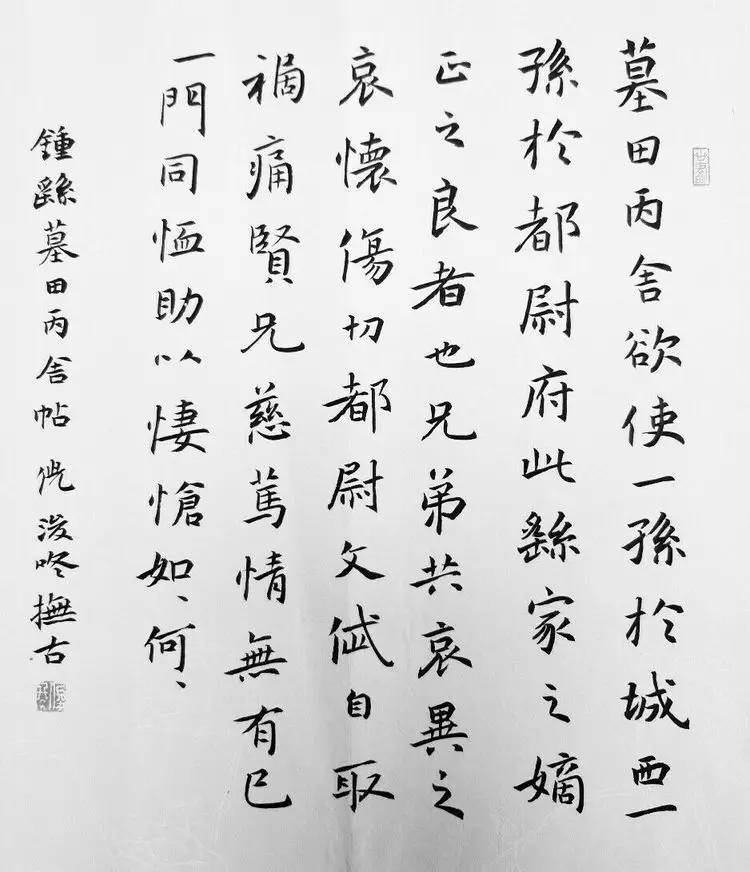 墓田丙舍欲使一孫於城西一
孫於都尉府此繇家之嫡
正之良者也兄弟共哀異之
哀懷傷切都尉文岱自取
禍痛賢兄慈篤情無有已
一門同恤助以悽愴如、何、
鍾繇墓田丙舍帖 撫古